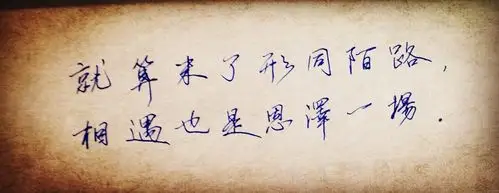 就算末了形同陌路，
相遇也是恩澤一場．